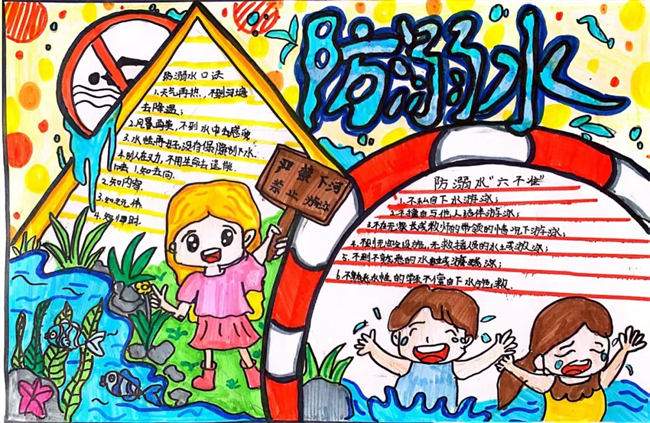 防溺水
防溺水口诀
1.天气再热，不到河塘
去降温；
2.风景再美，不到水中去感受
3.水性再好，没有保障勿下水.
4.别人在又力，不用生命去逞能.
1.知去向.
2.知内容
3.知同伴
4.知归时.
严禁下河
禁止游泳
防溺水"六不准"
1.不私自下水游泳；
2.不擅自与他人结伴游泳；
3.不在无家长或教师的带领的情况下游泳；
4.不到无安全设施，无救援员的水域游泳；
5.不到不熟悉的水域游泳；
6.不熟悉水性的学生不擅自下水施救.